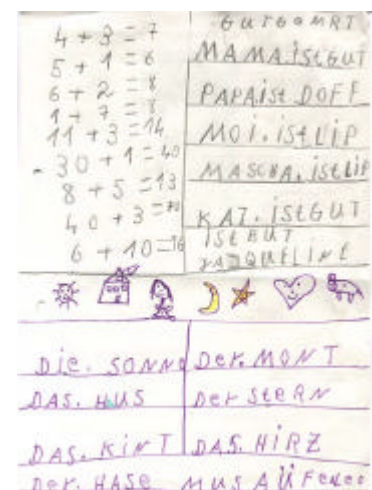 4 + 3 = 7
5 + 1 = 6
6 + 2 = 8
1 + 7 = 8
11 + 3 = 14
30 + 1 = 40
8 + 5 = 13
40 + 3 = 70
6 + 10 = 16
GUTGEMRT
MAMA.iStGUT
PAPAiSt DOFF
MOi.iStLiP
MASCHA.iStLiP
KAT.iStGUT
iSt GUT
JAQUELiNE
Die. SONNE
DAS. HUS
DAS. KiNT
Der. HASE
Der. MONT
Der SteRN
DAS. HiRZ
MUS AÜF